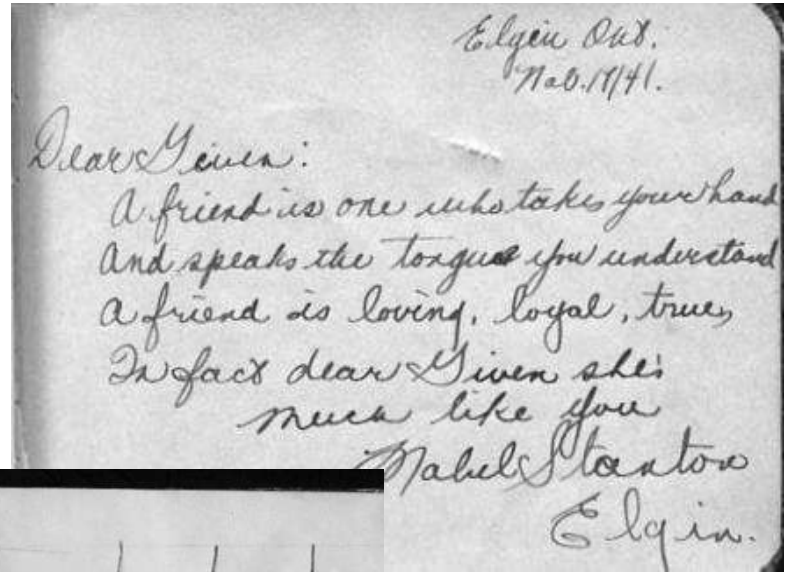 Elgin Ont.
Nov. 17/41.
Dear Gwen:
A friend is one who takes your hand
And speaks the tongue you understand
A friend is loving, loyal, true,
In fact dear Gwen she's
much like you
Mabel Stanton
Elgin.